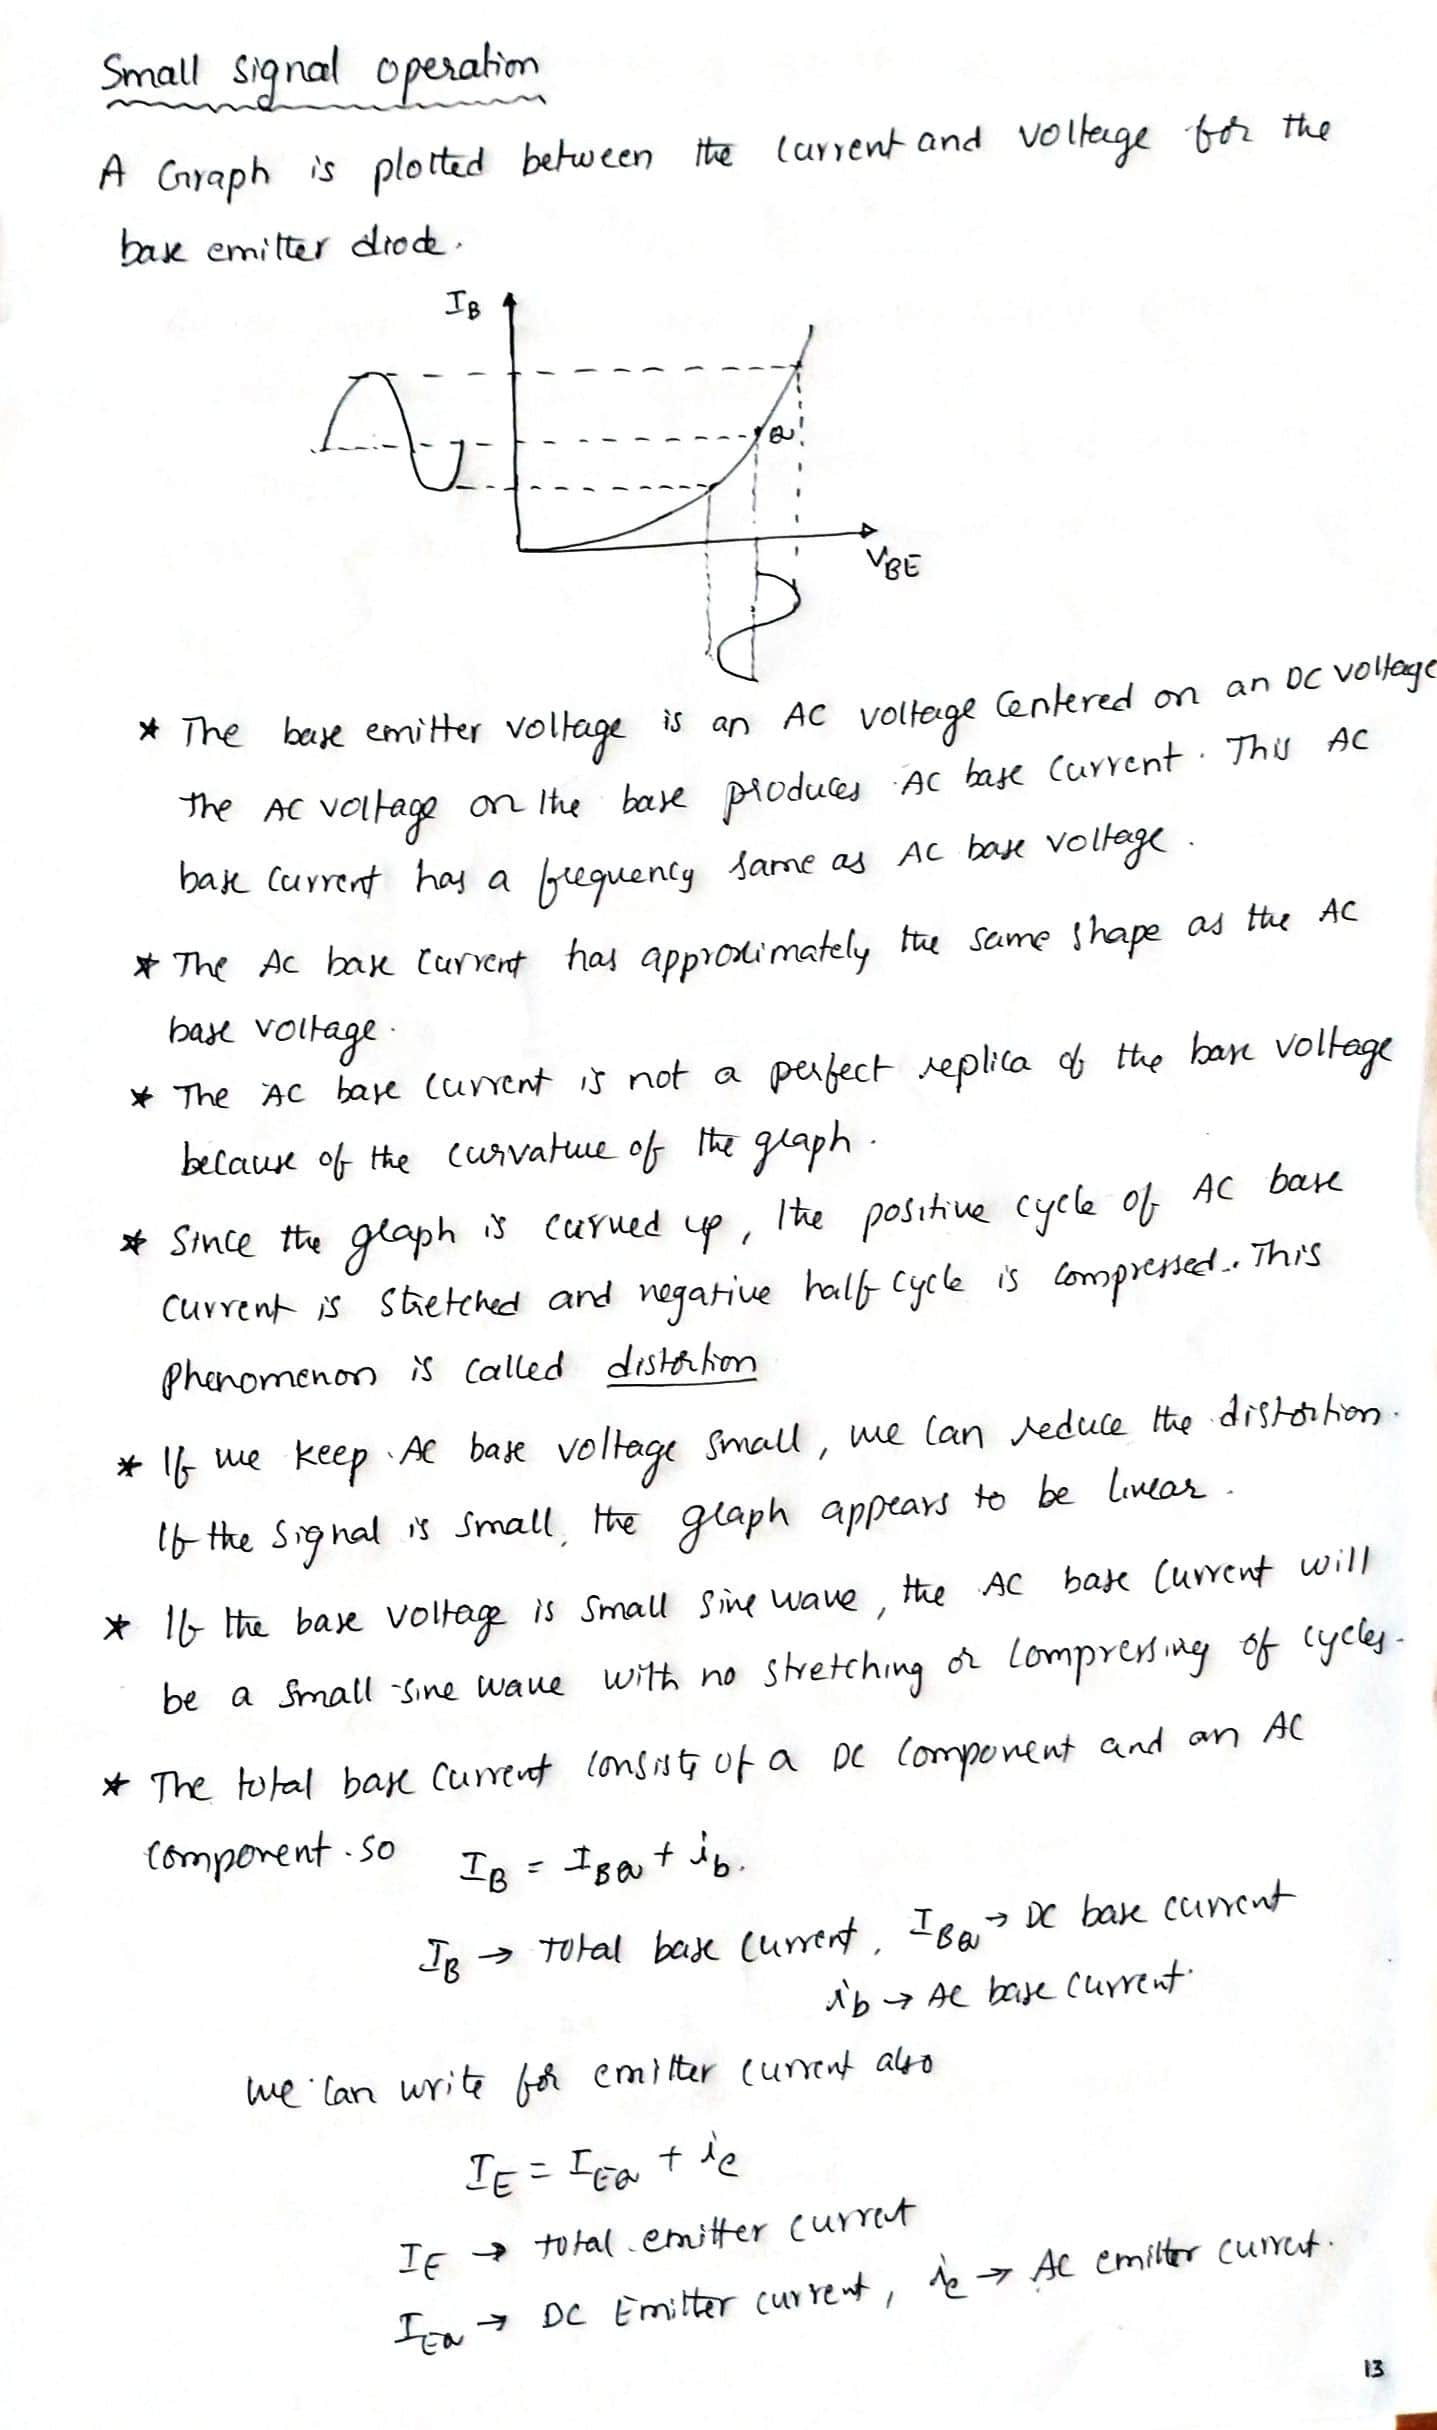 Small signal operation
A Graph is plotted between the current and voltage for the
base emitter diode.
IB
Q
VBE
* The base emitter voltage is an AC voltage centered on an DC voltage
The AC voltage on the base produces AC base current. This AC
base current has a frequency same as AC base voltage.
* The AC base current has approximately the same shape as the AC
base voltage.
* The AC base current is not a perfect replica of the base voltage
because of the curvature of the graph.
* Since the graph is curved up, the positive cycle of AC base
current is stretched and negative half cycle is compressed. This
phenomenon is called distortion
* If we keep AC base voltage small, we can reduce the distortion.
If the signal is small, the graph appears to be linear.
* If the base voltage is small sine wave, the AC base current will
be a small sine wave with no stretching or compressing of cycles.
* The total base current consists of a DC component and an AC
component. so IB = IBQ + ib.
IB → total base current, IBQ → DC base current
ib → AC base current.
we can write for emitter current also
IE = IEQ + ie
IE → total emitter current
IEQ → DC Emitter current, ie → AC emitter current.
13